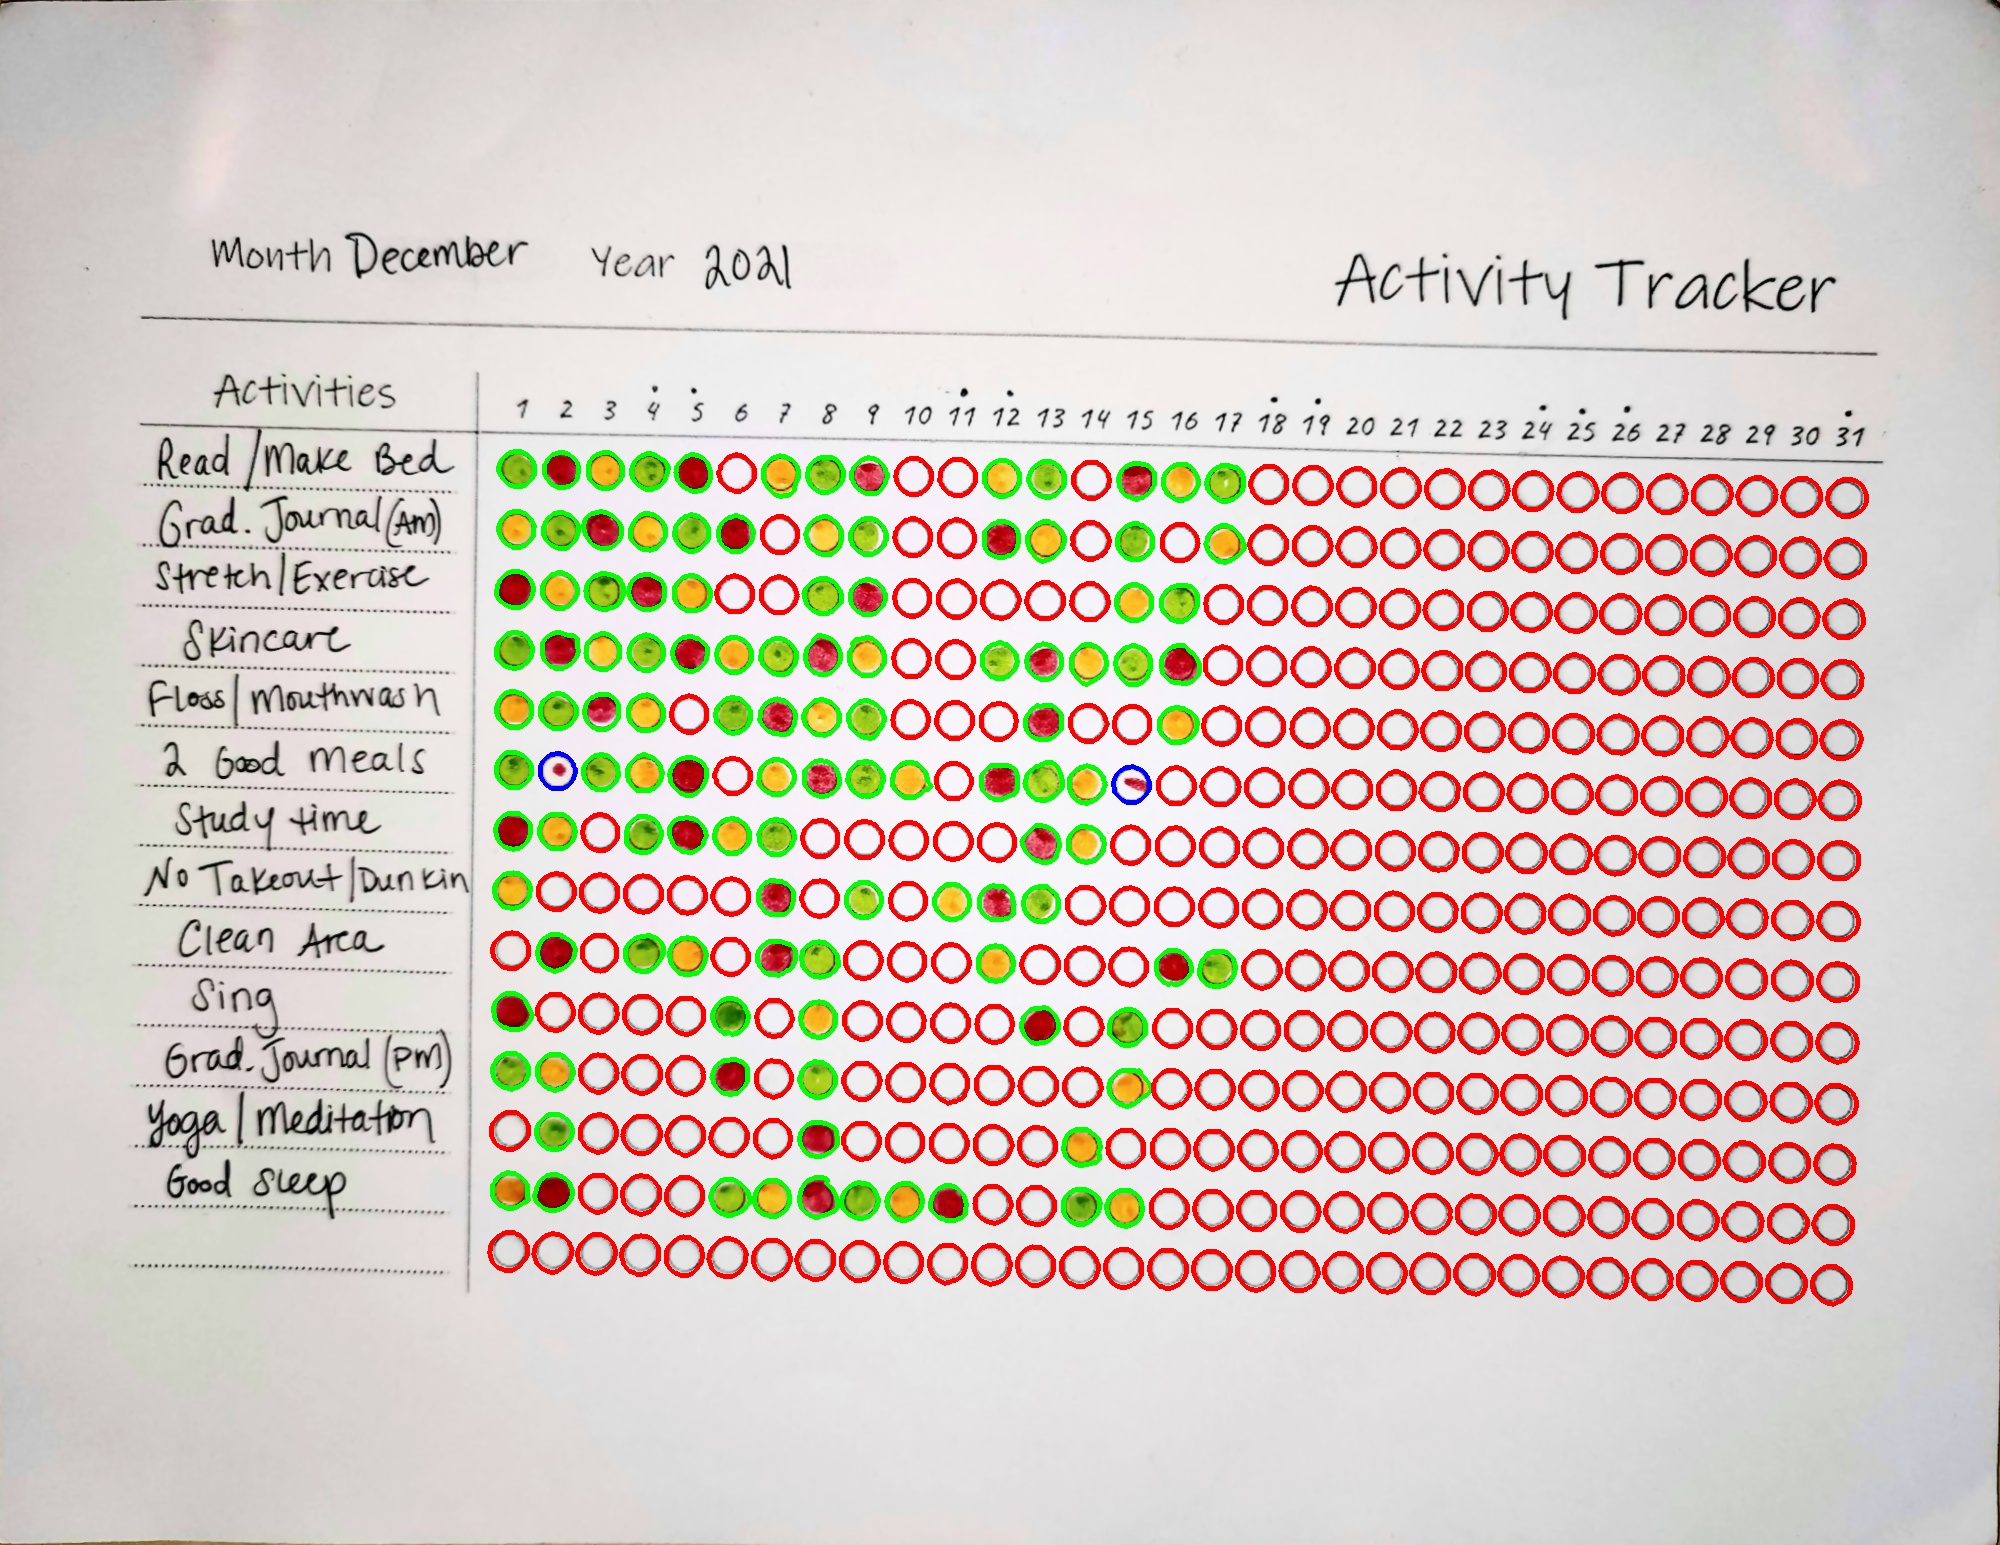 Month December Year 2021 Activity Tracker
Activities 1 2 3 4 5 6 7 8 9 10 11 12 13 14 15 16 17 18 19 20 21 22 23 24 25 26 27 28 29 30 31
Read/Make Bed
Grad. Journal (AM)
Stretch/Exercise
Skincare
Floss/Mouthwash
2 Good Meals
Study time
No Takeout/Dunkin
Clean Area
Sing
Grad. Journal (PM)
Yoga/Meditation
Good Sleep